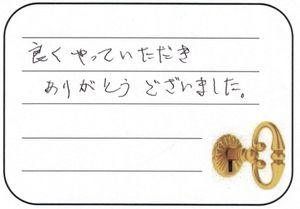 良くやっていただき
ありがとうございました。